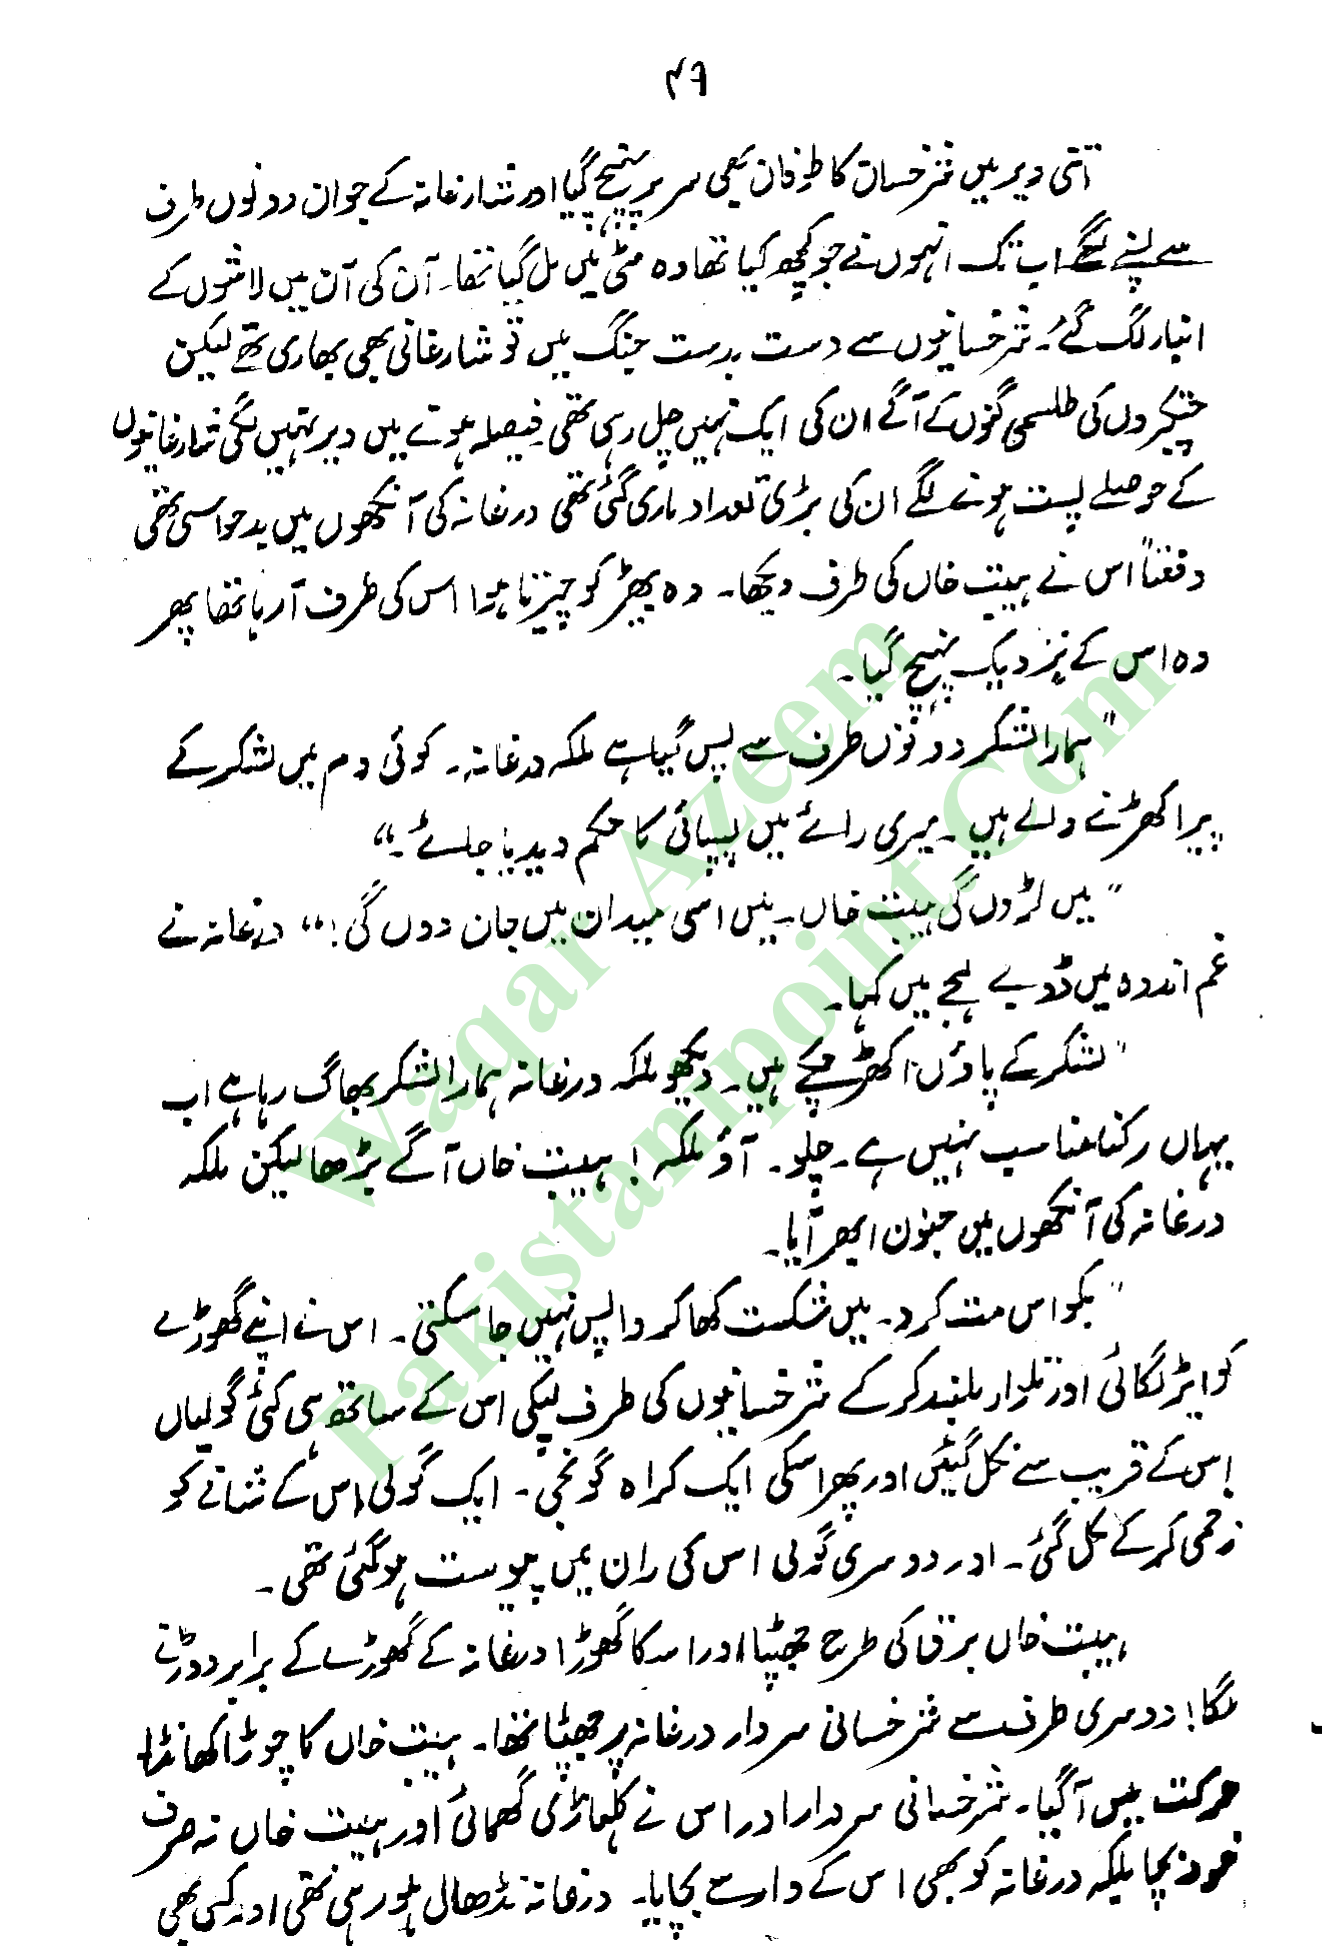 ۴۹
اتنی دیر میں شرخسان کا طوفان بھی سر پر پہنچ گیا اور شارغانہ کے جوان دونوں طرف
سے پسنے لگے اب تک انہوں نے جو کچھ کیا تھا وہ مٹی میں مل گیا تھا۔ آن کی آن میں لاشوں کے
انبار لگ گئے۔ شرخسانیوں سے دست بدست جنگ میں تو شارغانی بھی بھاری تھے لیکن
کی طلسمی گنوں کے آگے ان کی ایک نہیں چل رہی تھی فیصلہ ہوتے میں دیر نہیں لگی شارغانیوں
کے حوصلے پست ہونے لگے ان کی بڑی تعداد ماری گئی تھی درغانہ کی آنکھوں میں بدحواسی تھی
دفعتاً اس نے ہیبت خاں کی طرف دیکھا۔ وہ بھیڑ کو چیرتا ہوا اس کی طرف آرہا تھا پھر
وہ اس کے نزدیک پہنچ گیا۔
"ہمارا لشکر دونوں طرف سے پس گیا ہے ملکہ درغانہ۔ کوئی دم میں لشکر کے
پیر اکھڑنے والے ہیں۔ میری رائے میں پسپائی کا حکم دیدیا جائے۔"
"میں لڑوں گی ہیبت خاں۔ میں اسی میدان میں جان دوں گی!" درغانہ نے
غم اندوہ میں ڈوبے لہجے میں کہا۔
"لشکر کے پاؤں اکھڑ چکے ہیں۔ دیکھو ملکہ درغانہ ہمارا لشکر بھاگ رہا ہے اب
یہاں رکنا مناسب نہیں ہے۔ چلو۔ آؤ ملکہ! ہیبت خاں آگے بڑھا لیکن ملکہ
درغانہ کی آنکھوں میں جنون ابھر آیا۔
"بکواس مت کرو۔ میں شکست کھا کر واپس نہیں جا سکتی۔ اس نے اپنے گھوڑے
کو ایڑ لگائی اور تلوار بلند کر کے شرخسانیوں کی طرف لپکی اس کے ساتھ ہی کئی گولیاں
اس کے قریب سے نکل گئیں اور پھر اسکی ایک کراہ گونجی۔ ایک گولی اس کے شانے کو
زخمی کر کے نکل گئی۔ اور دوسری گولی اس کی ران میں پیوست ہو گئی تھی۔
ہیبت خاں برق کی طرح جھپٹا اور اسکا گھوڑا درغانہ کے گھوڑے کے برابر دوڑنے
لگا! دوسری طرف سے شرخسانی سردار درغانہ پر جھپٹا تھا۔ ہیبت خاں کا چوڑا کھانڈا
حرکت میں آگیا۔ شرخسانی سردار اور اس نے کلہاڑی گھمائی اور ہیبت خاں نہ صرف
خود بچا بلکہ درغانہ کو بھی اس کے وار سے بچایا۔ درغانہ نڈھال ہو رہی تھی اور کسی بھی
Waqar Azeem
Pakistanipoint.Com